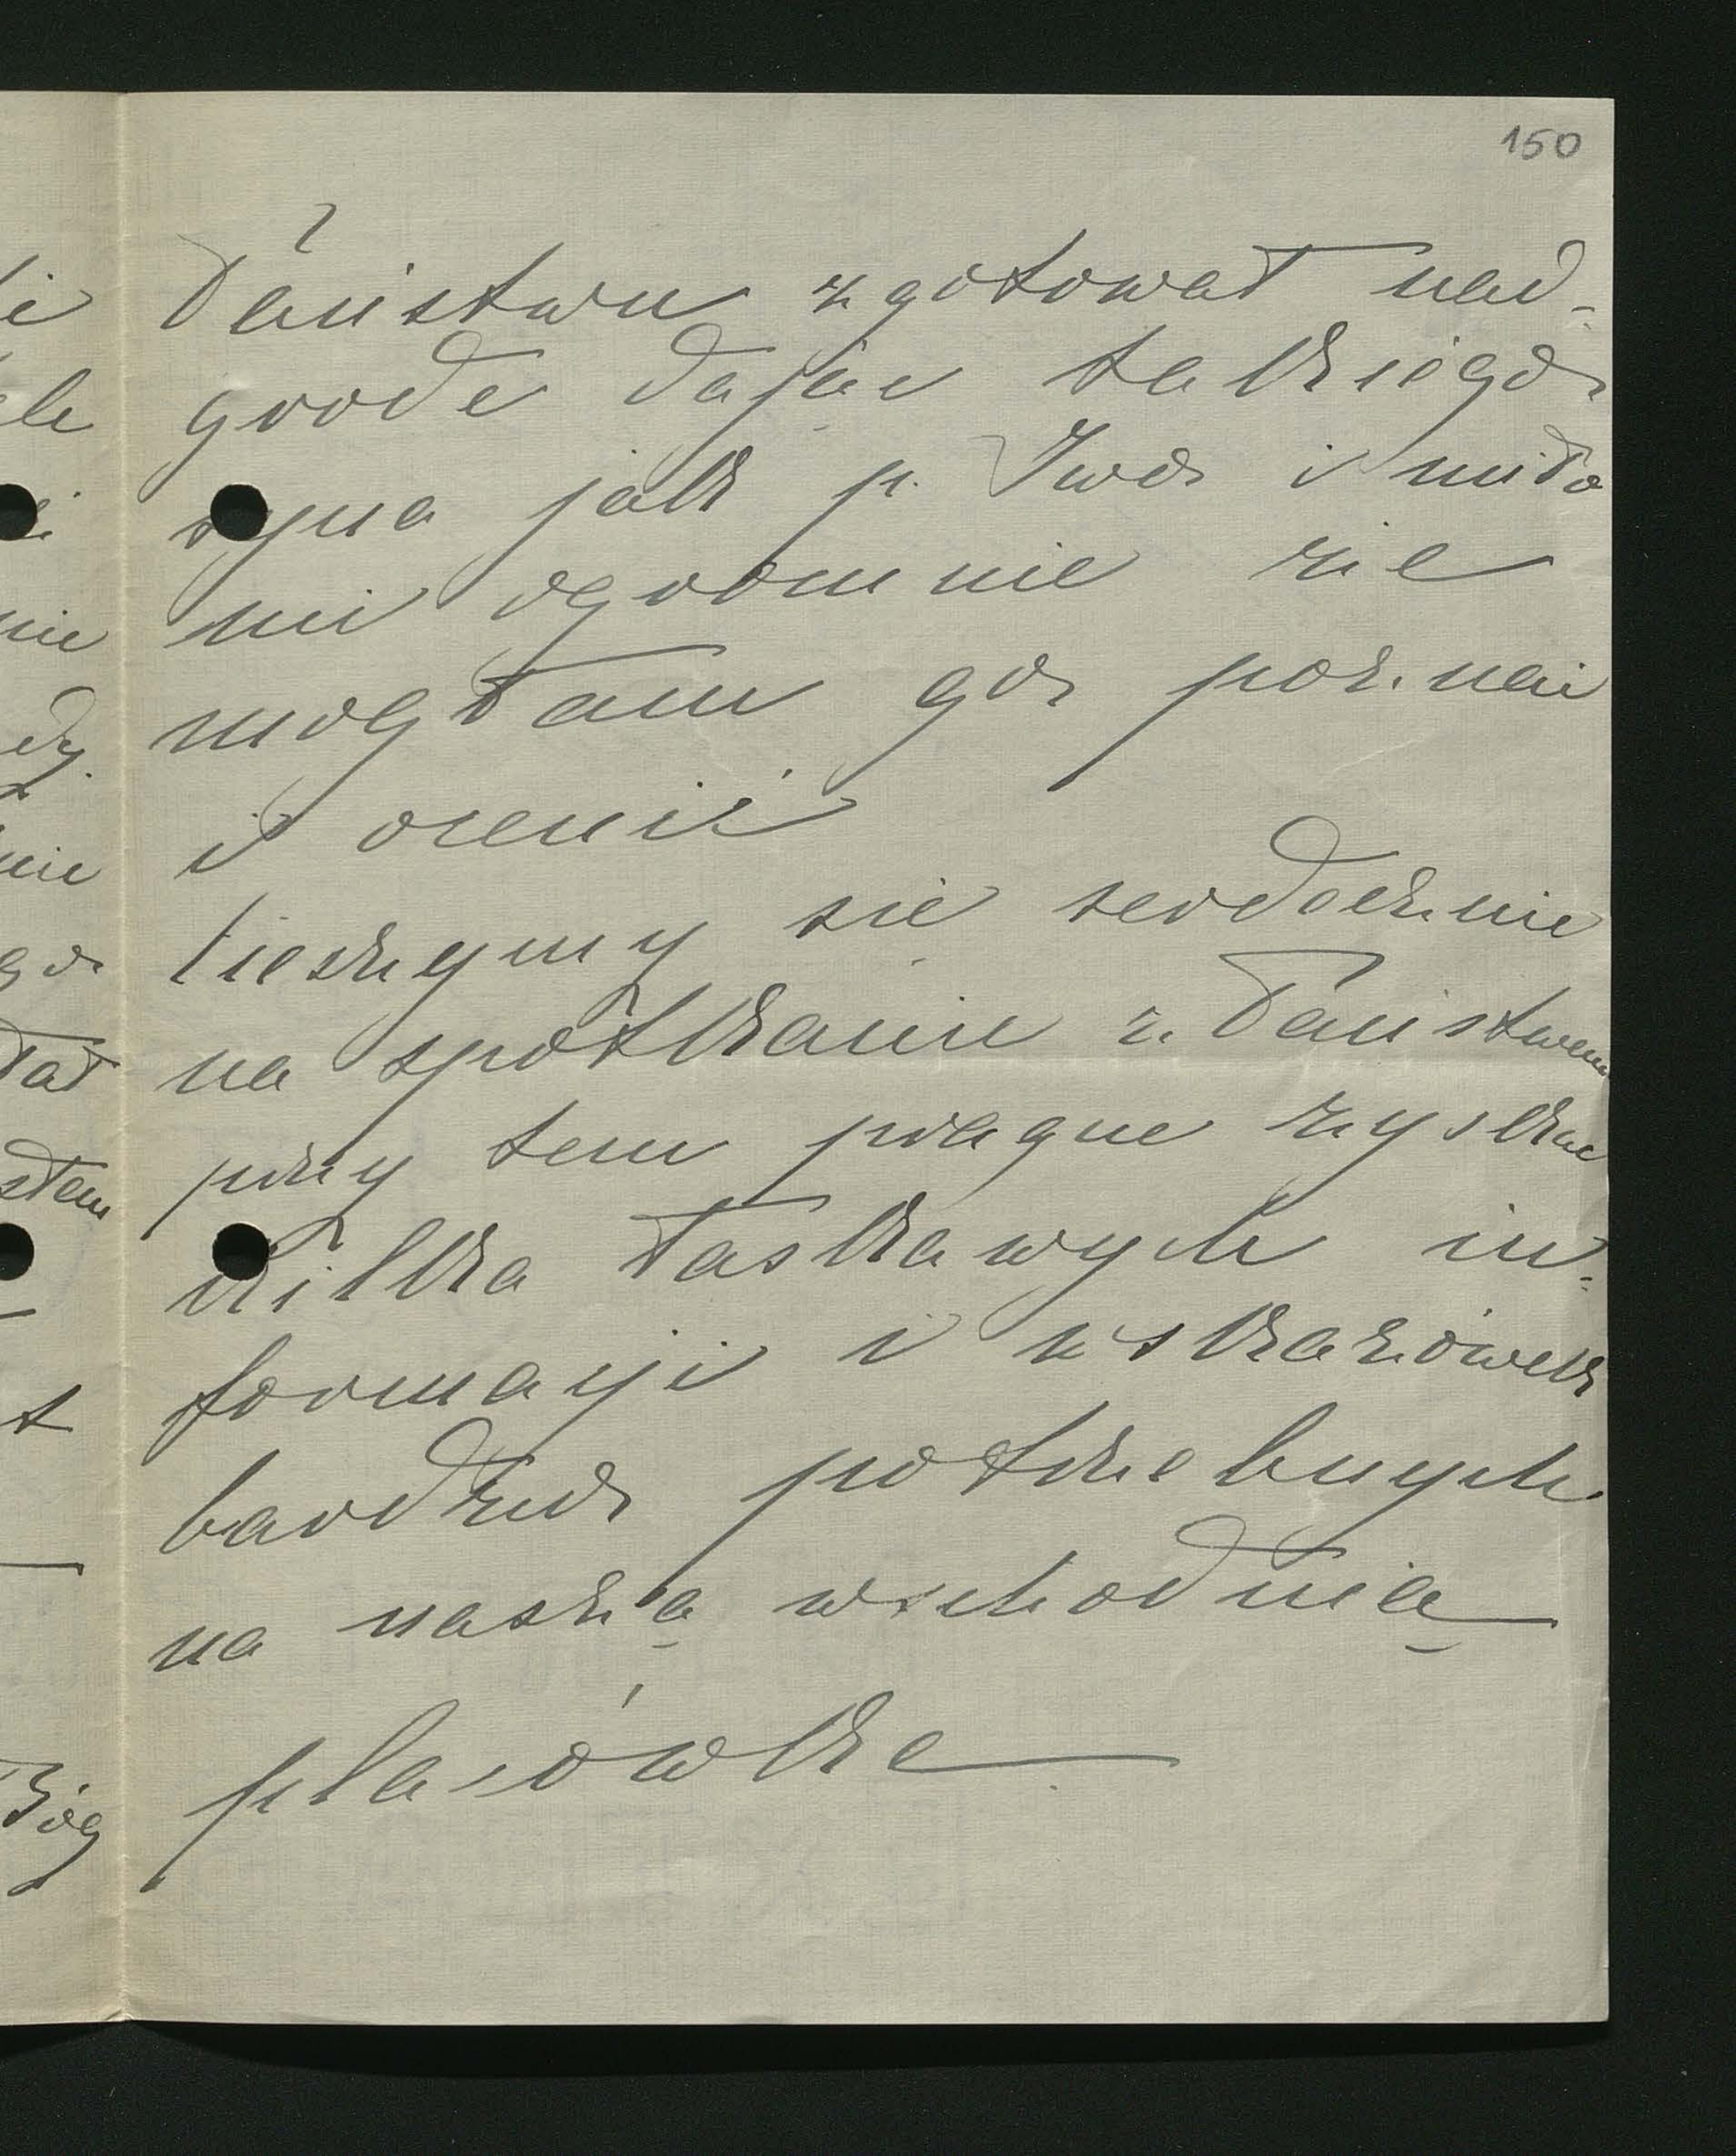 150
Państwu zgotował nad-
grode dając takiego
syna jak p. Iwo i miło
mi ogromnie że
mogłam go poznać
i ocenić
Cieszymy się serdecznie
na spotkanie z Państwem
przy tem pragnę zyskac
kilka łaskawych in-
formacyi i wskazówek
bardzo potrzebnych
na naszą wschodnią
placówke